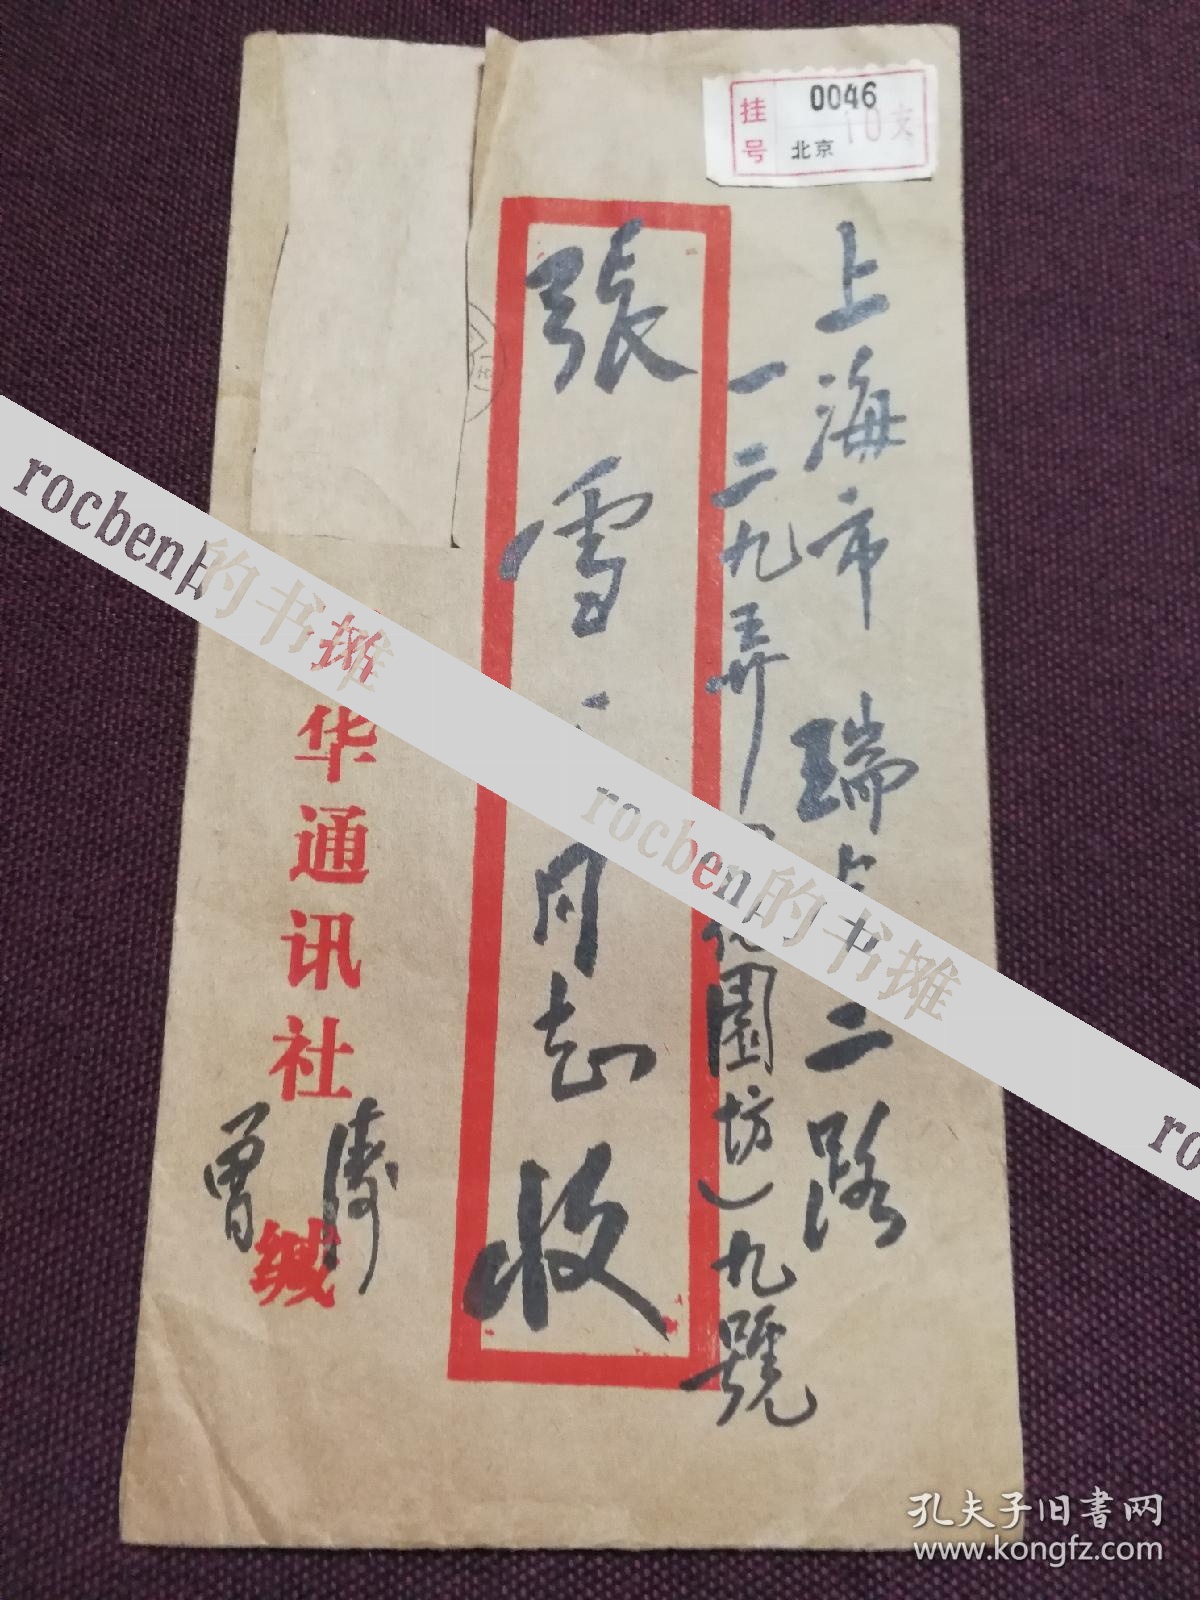 挂号
0046
10支
北京
上海市 瑞金二路
一二九弄(花園坊)九號
張雪 同志 收
华通讯社
曾涛
缄
rocben的书摊
rocben的书摊
ro
孔夫子旧书网
www.kongfz.com